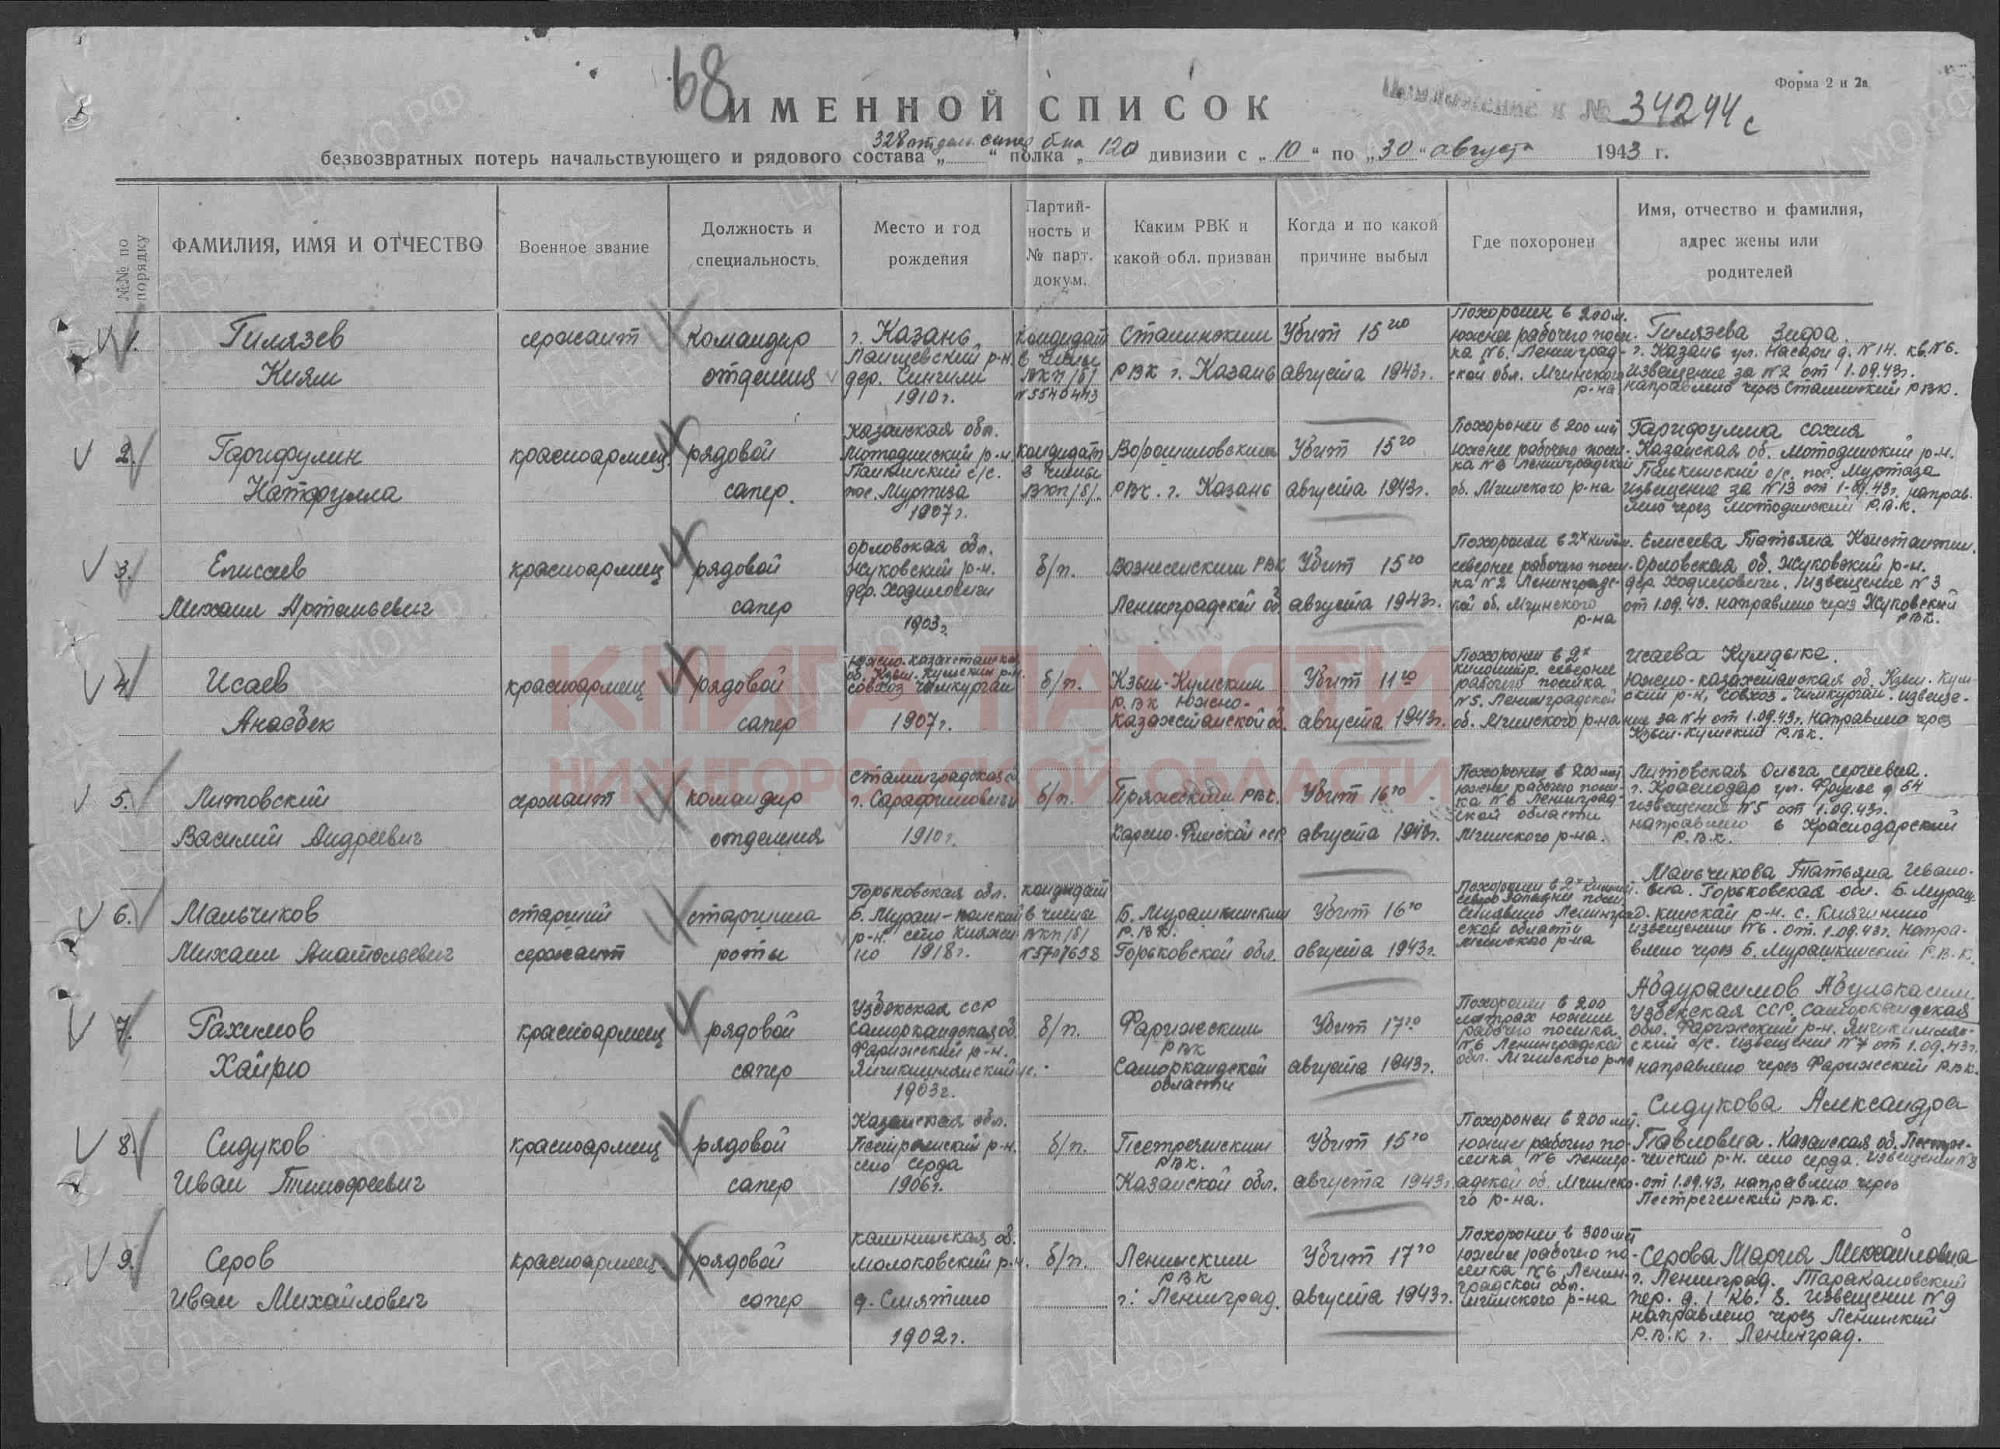 68
ИМЕННОЙ СПИСОК
Приложение к № 34244с
Форма 2 и 2а
328 отдел. сапер б-на
безвозвратных потерь начальствующего и рядового состава „ “ полка „ 120 дивизии с „ 10 “ по „ 30 “ августа 1943 г.
№№ по порядку
ФАМИЛИЯ, ИМЯ И ОТЧЕСТВО
Военное звание
Должность и
специальность
Место и год
рождения
Партий-
ность и
№ парт.
докум.
Каким РВК и
какой обл. призван
Когда и по какой
причине выбыл
Где похоронен
Имя, отчество и фамилия,
адрес жены или
родителей
1.
Гилязев
Киям
сержант
командир
отделения
г. Казань
Лаишевский р-н.
дер. Сингили
1910 г.
кандидат
в члены
ВКП/б/
№5540443
Сталинским
РВК г. Казань
Убит 15го
августа 1943г.
Похоронен в 200м.
южнее рабочего посел-
ка №6. Ленинград-
ской обл. Мгинского
р-на
Гилязева Зифа.
г. Казань ул. Насари д. №14. кв. №6.
извещение за №2 от 1.09.43г.
направлено через Сталинский РВК.
2.
Гарифулин
Натфулла
красноармеец
рядовой
сапер.
Казанская обл.
пос. Муртаза
1907 г.
кандидат
в члены
ВКП/б/.
Ворошиловским
РВК. г. Казань
Убит 15го
августа 1943г.
Похоронен в 200 мт
южнее рабочего посел-
ка №6 Ленинградской
об. Мгинского р-на
Гарифулина Сохия
Казанская об.
пос. Муртаза
извещение за №13 от 1-09.43г. направ.
лено через Р.В.К.
3.
Елисеев
Михаил Артемьевич
красноармеец
рядовой
сапер
Орловская обл.
Жуковский р-н.
дер. Ходиловичи
1903г.
б/п.
Вознесенским РВК
Ленинградской об.
Убит 15го
августа 1943г.
Похоронен в 2х килом.
севернее рабочего посел-
ка №2 Ленинградс-
кой об. Мгинского
р-на
Елисеева Татьяна Константин.
Орловская об. Жуковский р-н.
дер. Ходиловичи. Извещение №3
от 1.09.43. направлено через Жуковский
РВК.
4.
Исаев
Анасбек
красноармеец
рядовой
сапер
Южно-казахстанская
об. Кзыл-Кумский р-н.
совхоз Чимкурган
1907 г.
б/п.
Кзыл-Кумским
Р.В.К Южно-
казахстанской об.
Убит 11го
августа 1943г.
Похоронен в 2х
километр. севернее
рабочего поселка
№5. Ленинградской
об. Мгинского р-на
Исаева Кумдыка.
Южно-казахстанская об. Кзыл-Кум-
ский р-н, совхоз. Чимкурган. извеще-
ние за №4 от 1.09.43г. направлено через
Кзыл-Кумский Р.В.К.
5.
Литовский
Василий Андреевич
сержант
командир
отделения
Сталинградская о.
г. Серафимович
1910 г.
б/п.
Пряжским РВК.
Карело-Финской сср
Убит 16го
августа 1943г.
Похоронен в 200 мт
южнее рабочего посел-
ка №6 Ленинград-
ской области
Мгинского р-на.
Литовская Ольга Сергеевна.
г. Краснодар ул. Фрунзе д 54
извещение №5 от 1.09.43г.
направлено в Краснодарский
Р.В.К.
6.
Мальчиков
Михаил Анатольевич
старший
сержант
старшина
роты
Горьковская обл.
1918 г.
кандидат
в члены
ВКП/б/
№5707658
Б. Мурашкинским
Р.В.К.
Горьковской обл.
Убит 16го
августа 1943г.
Похоронен в 2х килом.
северо западней посел.
Синявино Ленинград-
ской области
Мгинского р-на
Мальчикова Татьяна Ивано-
вна. Горьковская обл. Б. Мураш-
кинский р-н. с. Княгинино
извещение №6. от. 1.09.43г. напра-
влено через Б. Мурашкинский Р.В.К.
7.
Рахимов
Хайрю
красноармеец
рядовой
сапер
Узбекская ССР
Самаркандская об.
Фаришский р-н.
1903г.
б/п.
Фаришским
РВК
Самаркандской
области
Убит 17го
августа 1943г.
Похоронен в 200
метрах южнее
рабочего поселка
№6 Ленинградской
обл. Мгинского р-на
Абдурасимов Абулькасим
Узбекская ССР, Самаркандская
обл. Фаришский р-н.
с/с. извещение №7 от 1.09.43г.
направлено через Фаришский РВК.
8.
Сидуков
Иван Тимофеевич
красноармеец
рядовой
сапер
Казанская обл.
Пестречинский р-н.
село Серда
1906г.
б/п.
Пестречинским
РВК.
Казанской обл.
Убит 15го
августа 1943г.
Похоронен в 200 мт.
южнее рабочего по-
селка №6 Ленингр-
адской об. Мгинско-
го р-на.
Сидукова Александра
Павловна. Казанская об. Пестре-
чинский р-н. село Серда. Извещение №8
от 1.09.43г. направлено через
Пестречинский РВК.
9.
Серов
Иван Михайлович
красноармеец
рядовой
сапер
Калининская об.
Молоковский р-н.
д. Смятино
1902г.
б/п.
Ленинским
РВК
г. Ленинград.
Убит 17го
августа 1943г.
Похоронен в 300 мт
южнее рабочего по-
селка №6 Ленин-
градской обл.
Мгинского р-на
Серова Мария Михайловна
г. Ленинград. Таракановский
пер. д. 1 кв. 8. Извещение №9
направлено через Ленинский
Р.В.К г. Ленинград.
КНИГА ПАМЯТИ
НИЖЕГОРОДСКОЙ ОБЛАСТИ